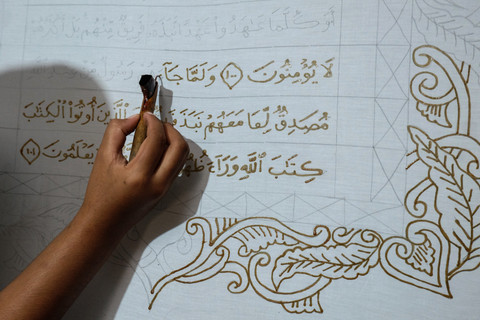 أَوَكُلَّمَا عَٰهَدُوا۟ عَهْدًا نَّبَذَهُۥ فَرِيقٌ مِّنْهُم بَلْ
لَا يُؤْمِنُونَ ١٠٠ وَلَمَّا جَآ
مُصَدِّقٌ لِّمَا مَعَهُمْ نَبَذَ ٱلَّذِينَ أُوتُوا۟ ٱلْكِتَٰبَ
كِتَٰبَ ٱللَّهِ وَرَآءَ يَعْلَمُونَ ١٠١